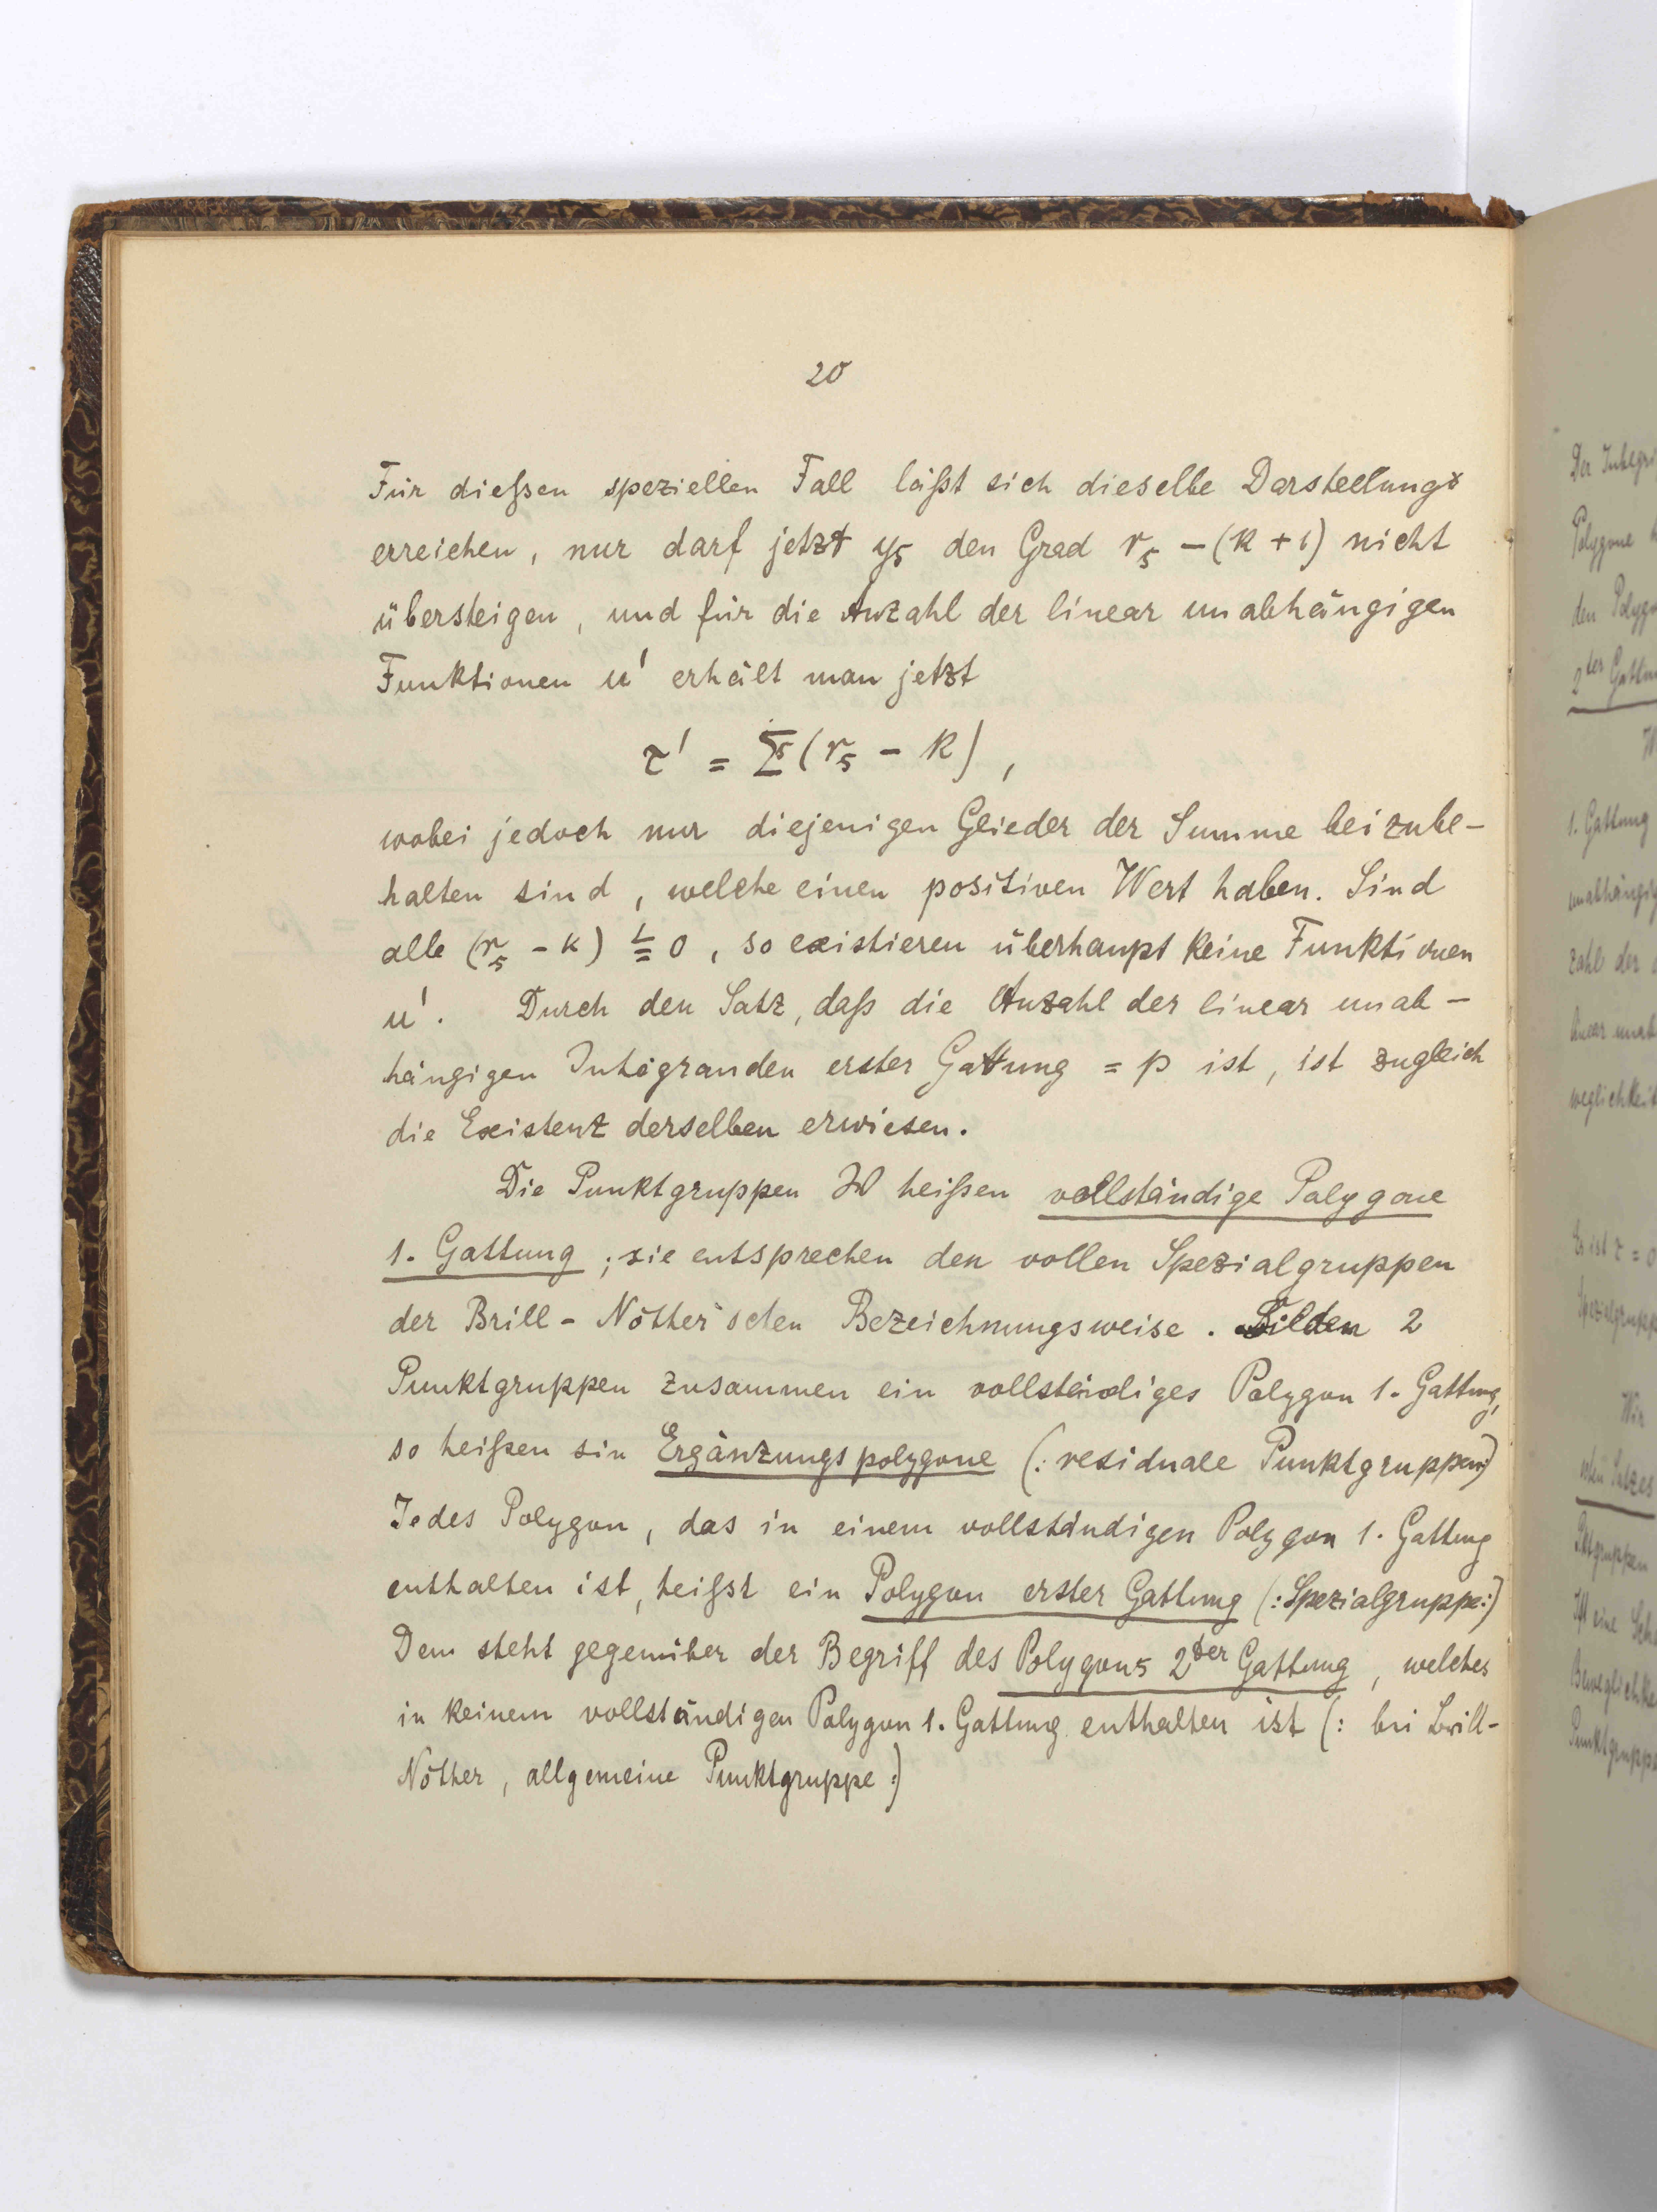 20
Für dießen speziellen Fall läßt sich dieselbe Darstellung
erreichen, nur darf jetzt y₅ den Grad r₅ – (k + 1) nicht
übersteigen, und für die Anzahl der linear unabhängigen
Funktionen u' erhält man jetzt
τ' = Σ(r₅ – k),
wobei jedoch nur diejenigen Glieder der Summe beizube–
halten sind, welche einen positiven Wert haben. Sind
alle (r₅ – k) ≦ 0, so existieren überhaupt keine Funktionen
u'. Durch den Satz, daß die Anzahl der linear unab–
hängigen Integranden erster Gattung = p ist, ist zugleich
die Existenz derselben erwiesen.
Die Punktgruppen W heißen vollständige Polygone
1. Gattung; sie entsprechen den vollen Spezialgruppen
der Brill-Nöther'schen Bezeichnungsweise. Bilden 2
Punktgruppen zusammen ein vollständiges Polygon 1. Gattung,
so heißen sie Ergänzungspolygone (: residuale Punktgruppen:)
Jedes Polygon, das in einem vollständigen Polygon 1. Gattung
enthalten ist, heißt ein Polygon erster Gattung (: Spezialgruppe:)
Dem steht gegenüber der Begriff des Polygons 2ter Gattung, welches
in keinem vollständigen Polygon 1. Gattung enthalten ist (: bei Brill-
Nöther, allgemeine Punktgruppe:)
Polygone
2ter
1. Gattung
zahl der
Es ist τ = 0
Wir